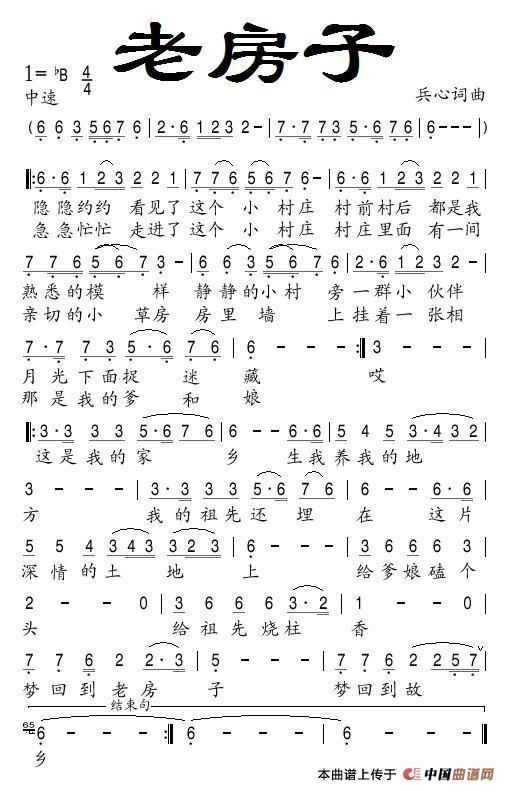 老房子
1=♭B 4/4
中速
兵心词曲
(6 6 3 5 6 7 6 | 2·6 1 2 3 2 - | 7·7 7 3 5·6 7 6 | 6 - - -)
‖:6·6 6 1 2 3 2 2 1 | 7 7 6 6 5 6 7 6 - | 6·6 6 1 2 3 2 2 1
隐隐约约 看见了 这个 小 村庄 村前村后 都是我
急急忙忙 走进了 这个 小 村庄 村庄里面 有一间
7 7 6 5 6 7 3 - | 7 7 6 6 3 5 5 6 7 6 | 2·6 6 1 2 3 2 -
熟悉的模 样 静静的小村 旁一群小 伙伴
亲切的小 草房 房里墙 上挂着一 张相
7·7 7 7 3 5·6 7 | 6 - - - :‖ 3 - - -
月光下面捉 迷 藏 哎
那是我的爹 和 娘
‖:3·3 3 3 5·6 7 6 | 6 - - 6·6 | 5 4 5 3·4 3 2
这是我的家 乡 生我养我的地
3 - - - | 3·3 3 3 5·6 7 | 6 - - 6·6
方 我的祖先还埋 在 这片
5 5 4 3 4 3 3 2 3 | 6 - - - | 3 6 6 6 7 6
深情的土 地 上 给爹娘磕个
2 - - 0 | 3 6 6 6 3·2 | 1 - - 0
头 给祖先烧柱 香
7 7 6 2 2·3 | 5 - - - | 7 7 6 2 2 5 7
梦回到老房 子 梦回到故
结束句
65
6 - - - :‖ 6 - - - | 6 - - - ‖
乡
本曲谱上传于 中国曲谱网